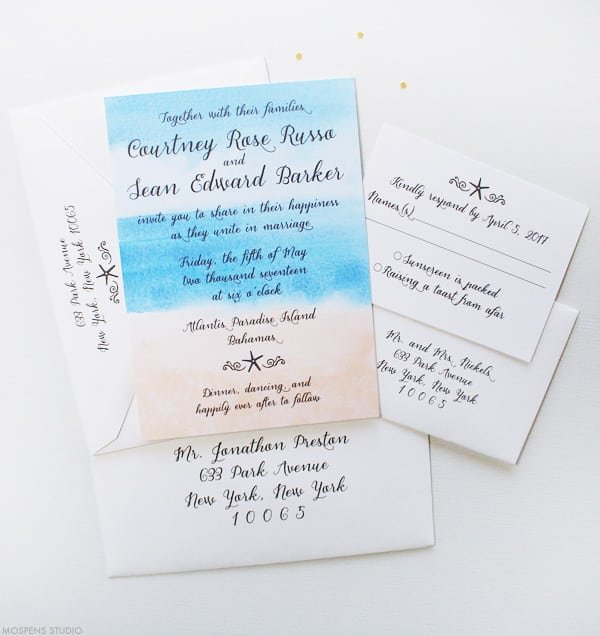 Together with their families
Courtney Rose Russo
and
Sean Edward Barker
invite you to share in their happiness
as they unite in marriage
Friday, the fifth of May
two thousand seventeen
at six o'clock
Atlantis Paradise Island
Bahamas
Dinner, dancing, and
happily ever after to follow
633 Park Avenue
New York, New York 10065
Kindly respond by April 5, 2017
Names(s)
Sunscreen is packed
Raising a toast from afar
Mr. and Mrs. Nickels
633 Park Avenue
New York, New York
10065
Mr. Jonathon Preston
633 Park Avenue
New York, New York
10065
MOSPENS STUDIO